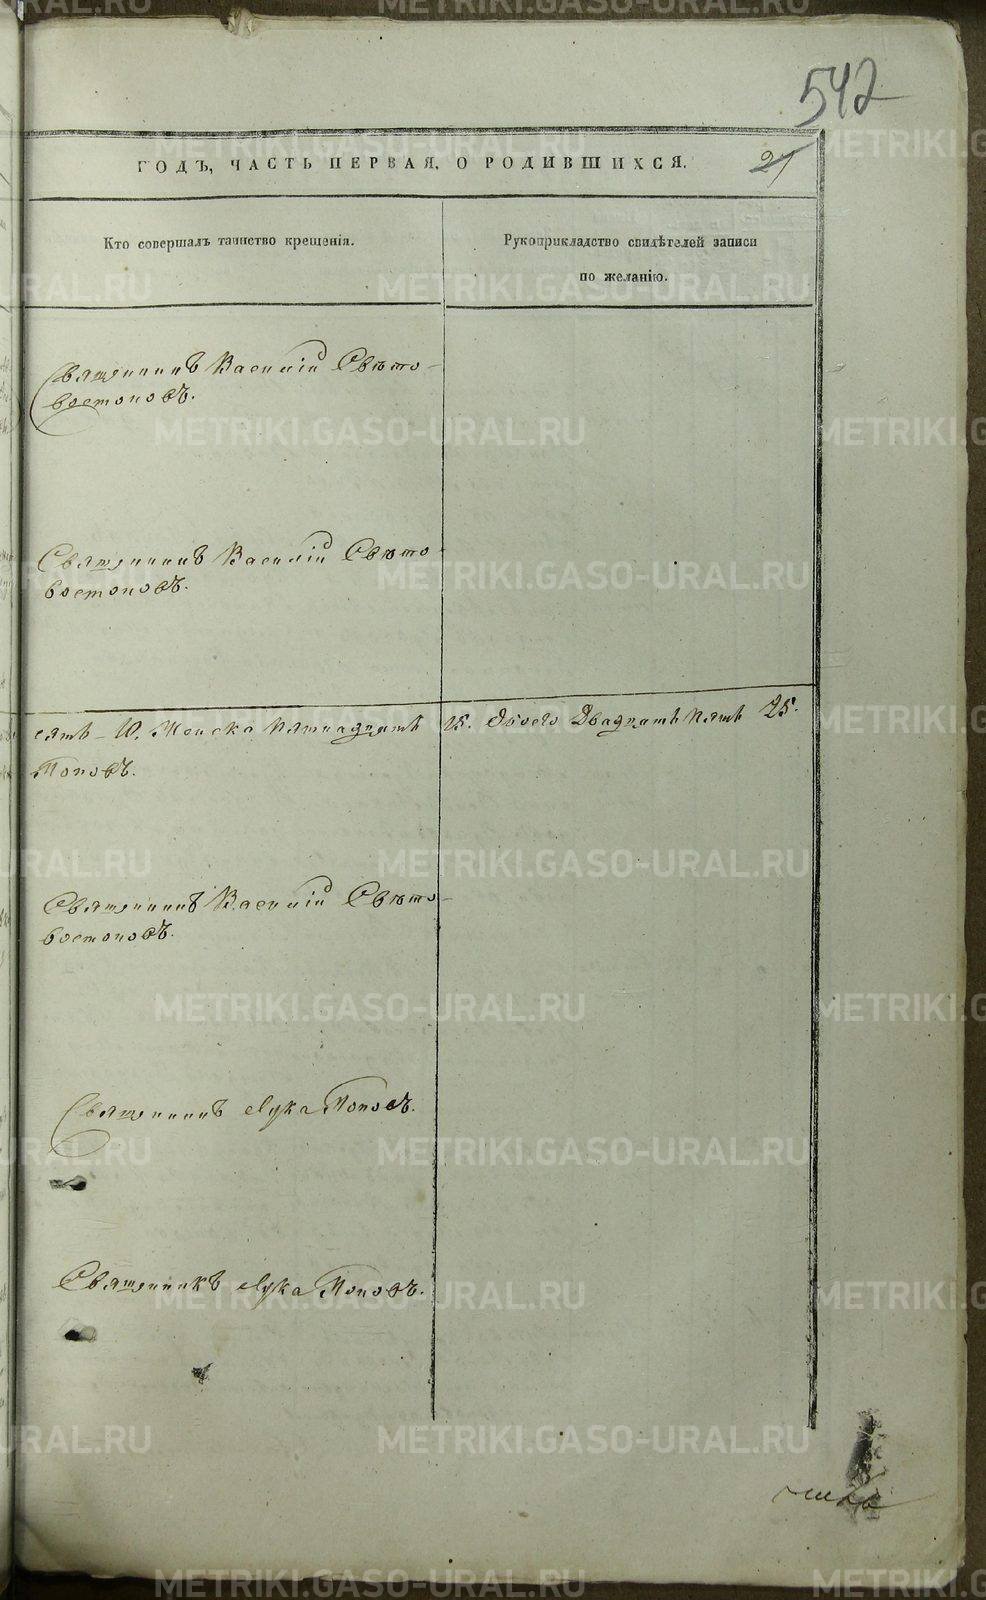 542
ГОДЪ, ЧАСТЬ ПЕРВАЯ, О РОДИВШИХСЯ.
Кто совершалъ таинство крещенія.
Рукоприкладство свидѣтелей записи
по желанію.
Священникъ Василій Свѣто-
востоковъ.
Священникъ Василій Свѣто
востоковъ.
сять – 10. Женска пятнадцать 15. Обоего Двадцать пять 25.
Поповъ.
Священникъ Василій Свѣто-
востоковъ.
Священникъ Лука Поповъ.
Священникъ Лука Поповъ.
METRIKI.GASO-URAL.RU